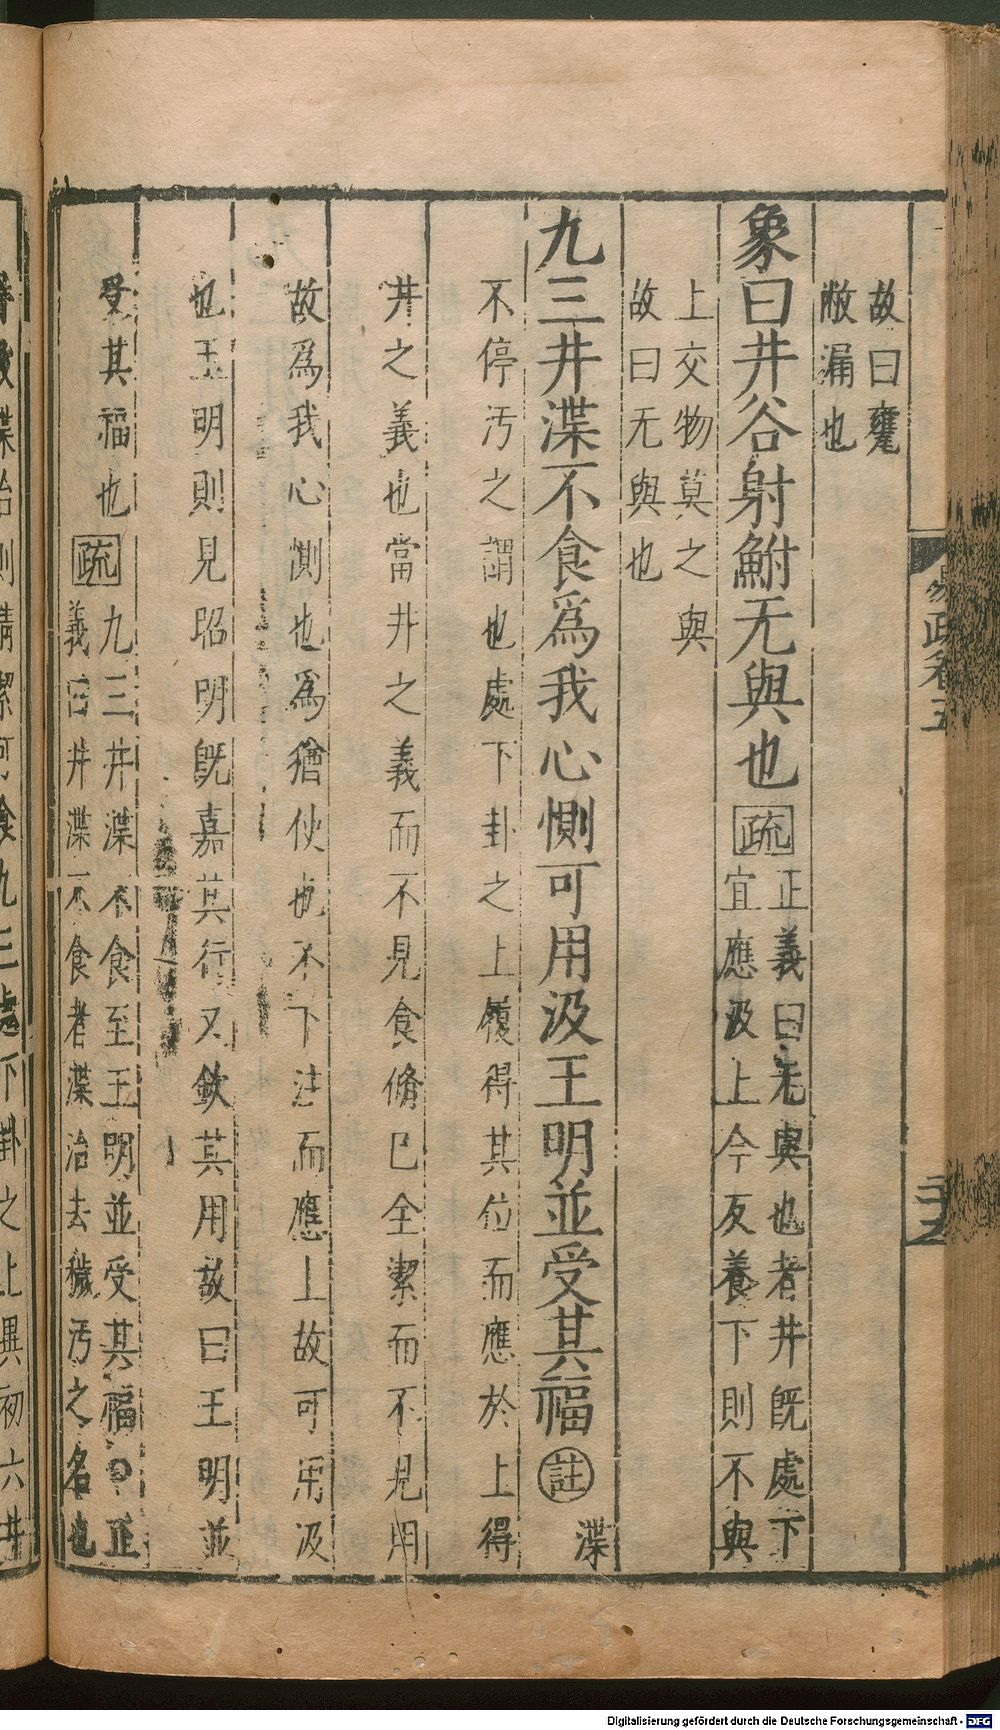 易疏卷五
故曰甕
敝漏也
象曰井谷射鮒无與也疏正義曰无與也者井旣處下
宜應汲上今反養下則不與
上交物莫之與
故曰无與也
九三井渫不食爲我心惻可用汲王明並受其福註渫
不停汚之謂也處下卦之上履得其位而應於上得
井之義也當井之義而不見食脩己全潔而不見用
故爲我心惻也爲猶使也不下注而應上故可用汲
也王明則見昭明旣嘉其行又欽其用故曰王明並
受其福也疏九三井渫不食至王明並受其福○正
義曰井渫不食者渫治去穢汚之名也
渫治則清潔可食九三處下卦之上異初六井
Digitalisierung gefördert durch die Deutsche Forschungsgemeinschaft - DFG